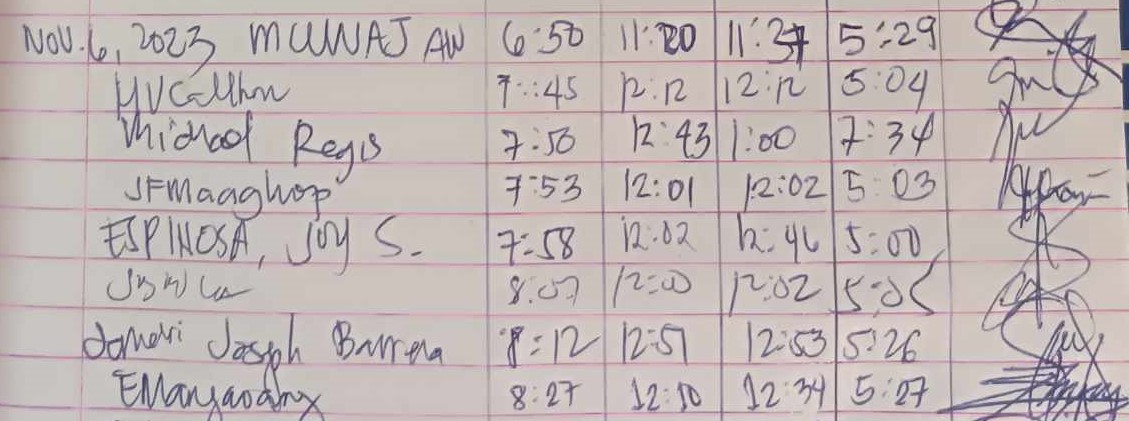 Nov. 6, 2023 MUNAJ AW 6:50 11:20 11:37 5:29
7:45 12:12 12:12 5:04
Michael Regis 7:50 12:43 1:00 7:34
JFMaaghop 7:53 12:01 12:02 5:03
ESPINOSA, JOY S. 7:58 12:02 12:46 5:00
8:07 12:00 12:02 5:05
Jomari Joseph Barrera 8:12 12:51 12:53 5:26
8:27 12:10 12:34 5:27